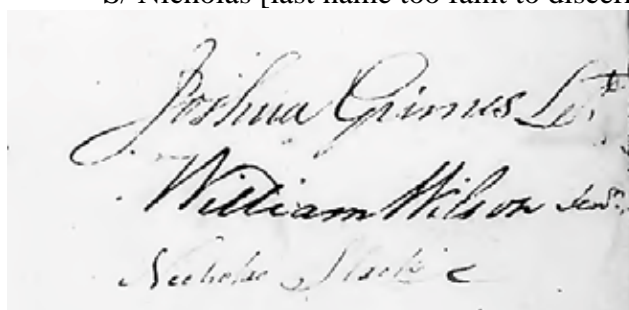 S/ Nicholas [last name too faint to discern
Joshua Grimes Lt
William Wilson
Nicholas